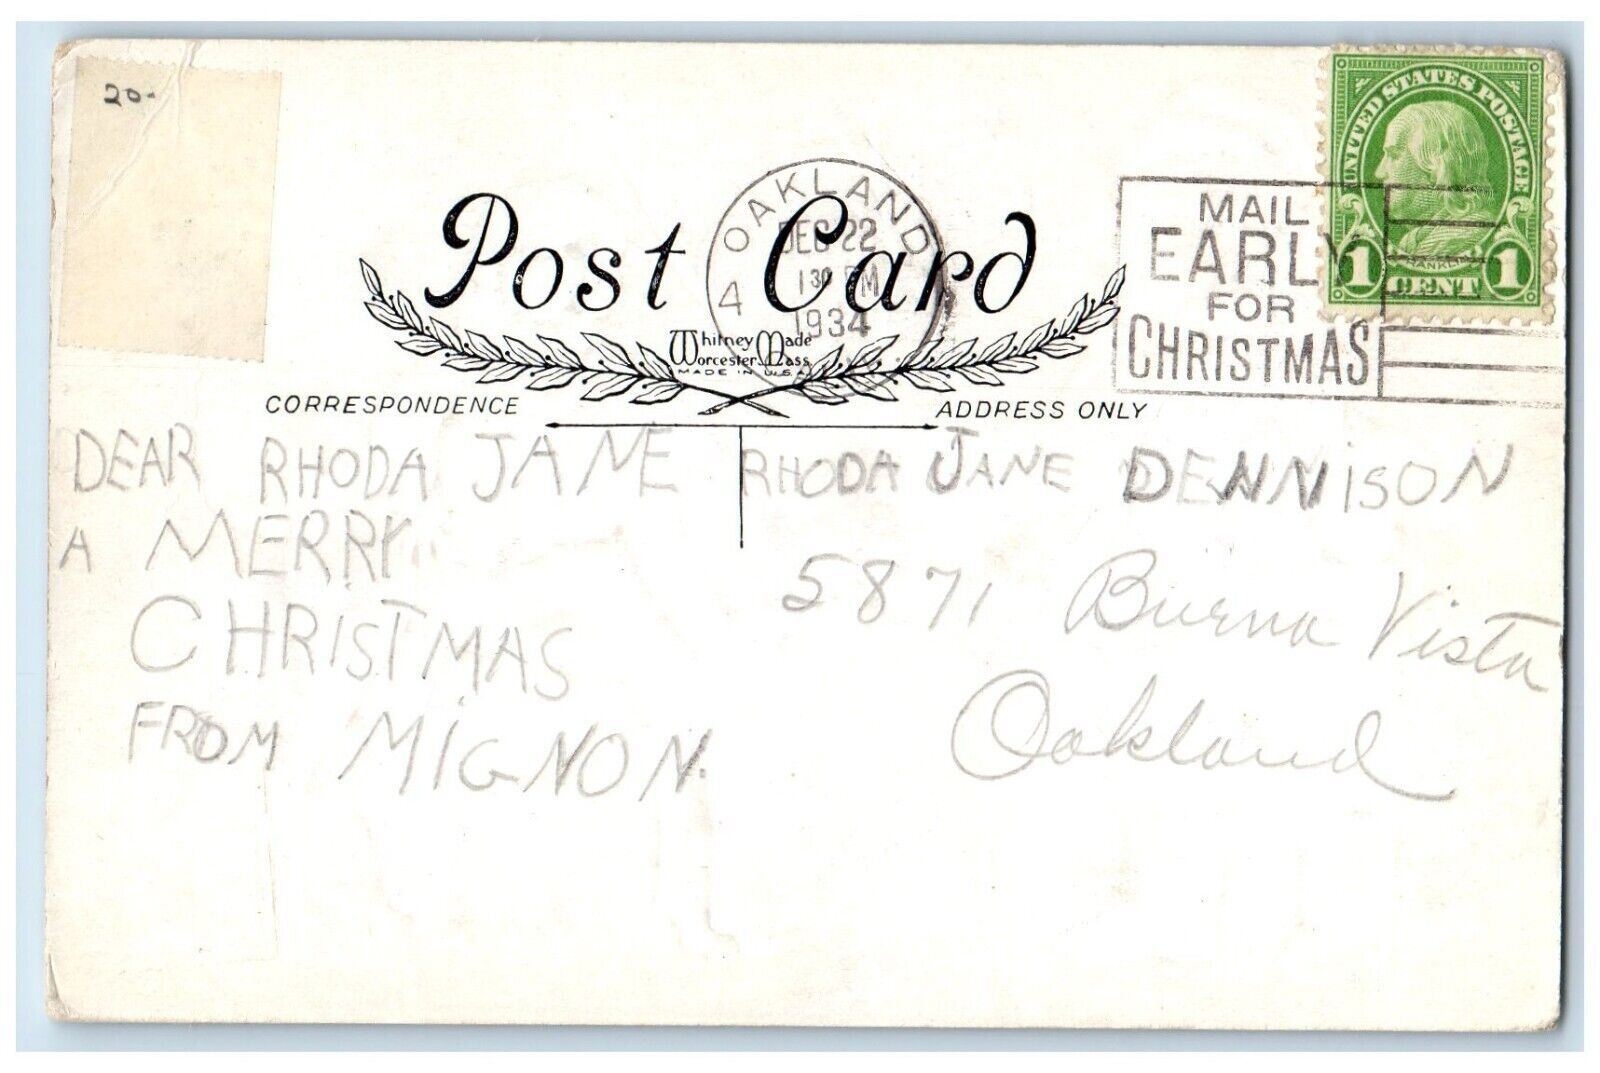 20-
Post Card
4 OAKLAND
DEC 22
1 30 PM
1934
MAIL
EARLY
FOR
CHRISTMAS
UNITED STATES POSTAGE
FRANKLIN
1 CENT 1
Whitney Made
Worcester Mass
MADE IN U.S.A.
CORRESPONDENCE
ADDRESS ONLY
DEAR RHODA JANE
A MERRY
CHRISTMAS
FROM MIGNON.
RHODA JANE DENNISON
5871 Buena Vista
Oakland